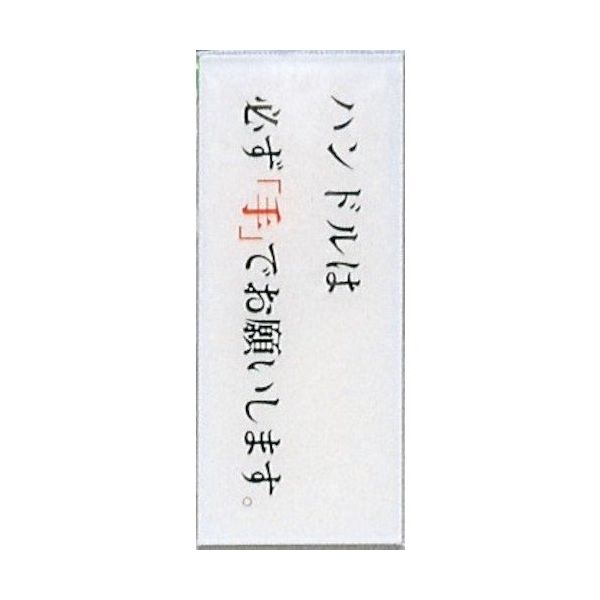 ハンドルは
必ず「手」でお願いします。